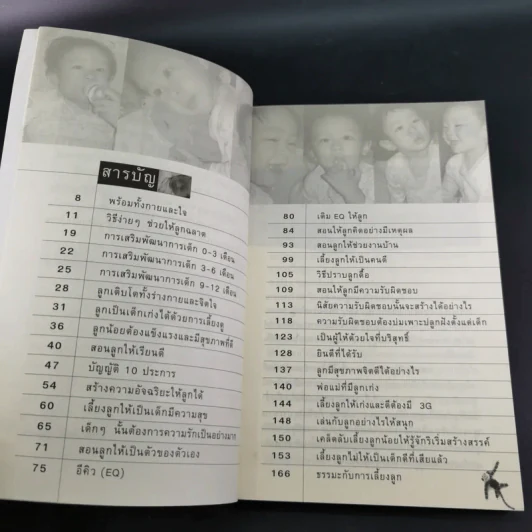 สารบัญ
8 พร้อมทั้งกายและใจ
11 วิธีง่ายๆ ช่วยให้ลูกฉลาด
19 การเสริมพัฒนาการเด็ก 0-3 เดือน
22 การเสริมพัฒนาการเด็ก 3-6 เดือน
25 การเสริมพัฒนาการเด็ก 9-12 เดือน
28 ลูกเติบโตทั้งร่างกายและจิตใจ
31 ลูกเป็นเด็กเก่งได้ด้วยการเลี้ยงดู
36 ลูกน้อยต้องแข็งแรงและมีสุขภาพที่ดี
40 สอนลูกให้เรียนดี
47 บัญญัติ 10 ประการ
54 สร้างความอัจฉริยะให้ลูกได้
60 เลี้ยงลูกให้เป็นเด็กมีความสุข
65 เด็กๆ นั้นต้องการความรักเป็นอย่างมาก
71 สอนลูกให้เป็นตัวของตัวเอง
75 อีคิว (EQ)
80 เติม EQ ให้ลูก
84 สอนให้ลูกคิดอย่างมีเหตุผล
93 สอนลูกให้ช่วยงานบ้าน
99 เลี้ยงลูกให้เป็นคนดี
105 วิธีปราบลูกดื้อ
109 สอนให้ลูกมีความรับผิดชอบ
113 นิสัยความรับผิดชอบนั้นจะสร้างได้อย่างไร
118 ความรับผิดชอบต้องบ่มเพาะปลูกฝังตั้งแต่เด็ก
123 เป็นผู้ให้ด้วยใจที่บริสุทธิ์
128 ยินดีที่ได้รับ
137 ลูกมีสุขภาพจิตดีได้อย่างไร
140 พ่อแม่ที่มีลูกเก่ง
144 เลี้ยงลูกให้เก่งและดีต้องมี 3G
148 เล่นกับลูกอย่างไรให้สนุก
150 เคล็ดลับเลี้ยงลูกน้อยให้รู้จักริเริ่มสร้างสรรค์
153 เลี้ยงลูกไม่ให้เป็นเด็กดีที่เสียแล้ว
166 ธรรมะกับการเลี้ยงลูก